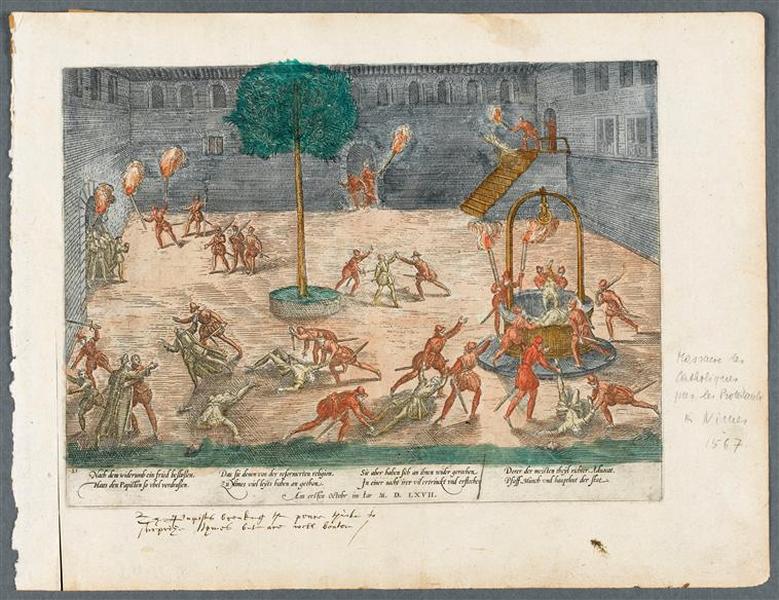 21
Nach dem widerumb ein fried beslossen.
Hats den Papisten so vbel verdrossen.
Das sie denen von der reformerten religien.
Zu Nimes viel leyts haben an gethon.
Sie aber haben sich an ihnen wider gerochen.
In einer nacht irer vil ertrenckt vnd erstochen
Derer der meisten theyl richter Aduocat.
Pfaff Münch vnd haupleut der stat.
Am ersten Octobr im Iar M. D. LXVII.
Papists breaking the peace
Nymes but are well beaten
Massacre des
Catholiques
par les Protestants
à Nimes
1567.